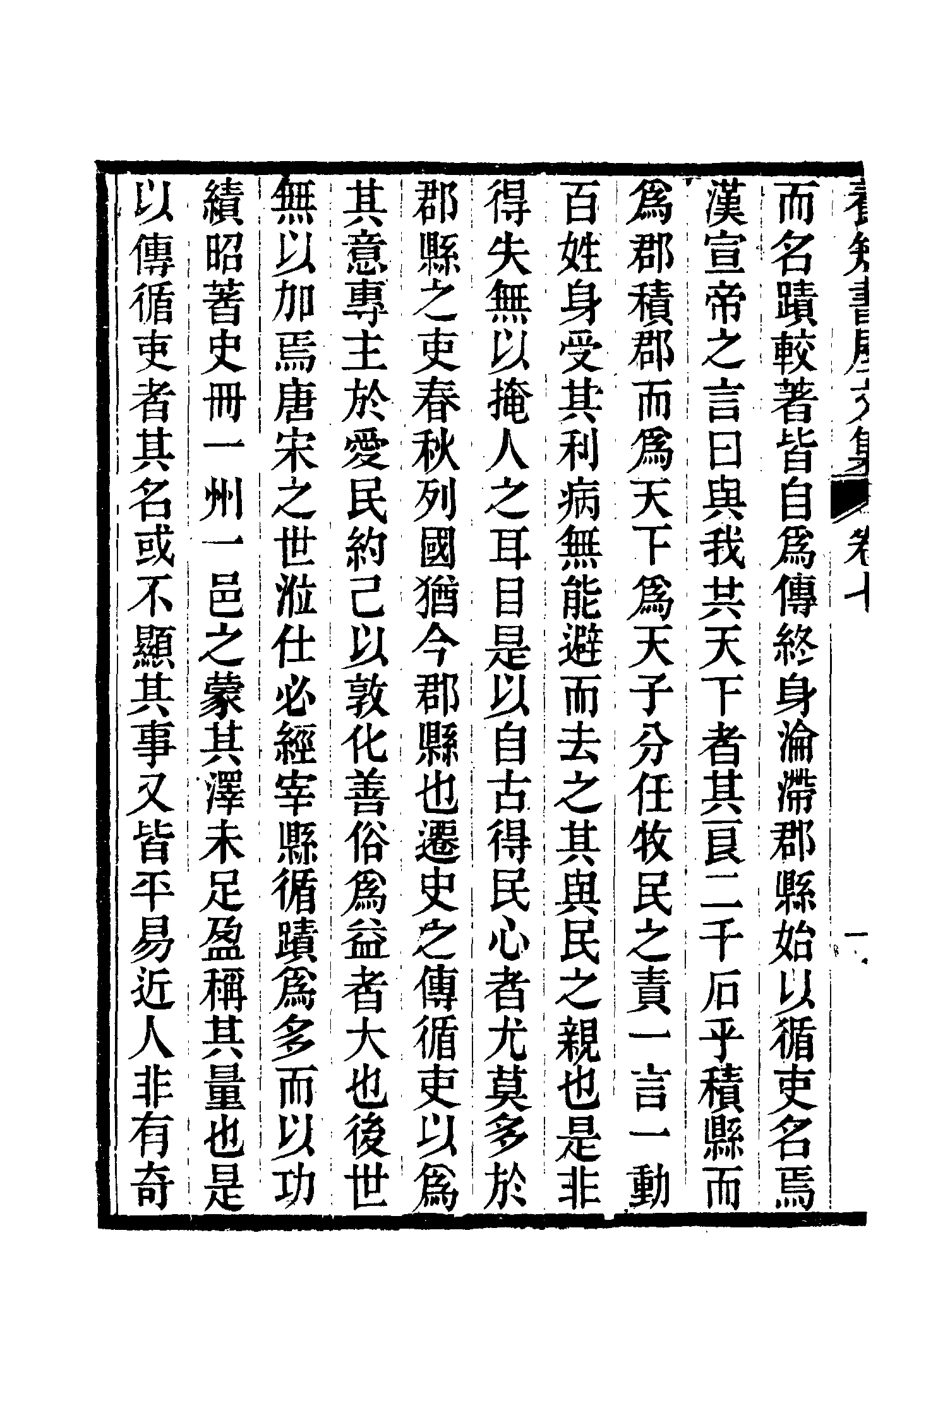 養知書屋文集 卷七 一
而名蹟較著皆自爲傳終身淪滯郡縣始以循吏名焉
漢宣帝之言曰與我共天下者其良二千石乎積縣而
爲郡積郡而爲天下爲天子分任牧民之責一言一動
百姓身受其利病無能避而去之其與民之親也是非
得失無以掩人之耳目是以自古得民心者尤莫多於
郡縣之吏春秋列國猶今郡縣也遷史之傳循吏以爲
其意專主於愛民約己以敦化善俗爲益者大也後世
無以加焉唐宋之世涖仕必經宰縣循蹟爲多而以功
績昭著史冊一州一邑之蒙其澤未足盈稱其量也是
以傳循吏者其名或不顯其事又皆平易近人非有奇